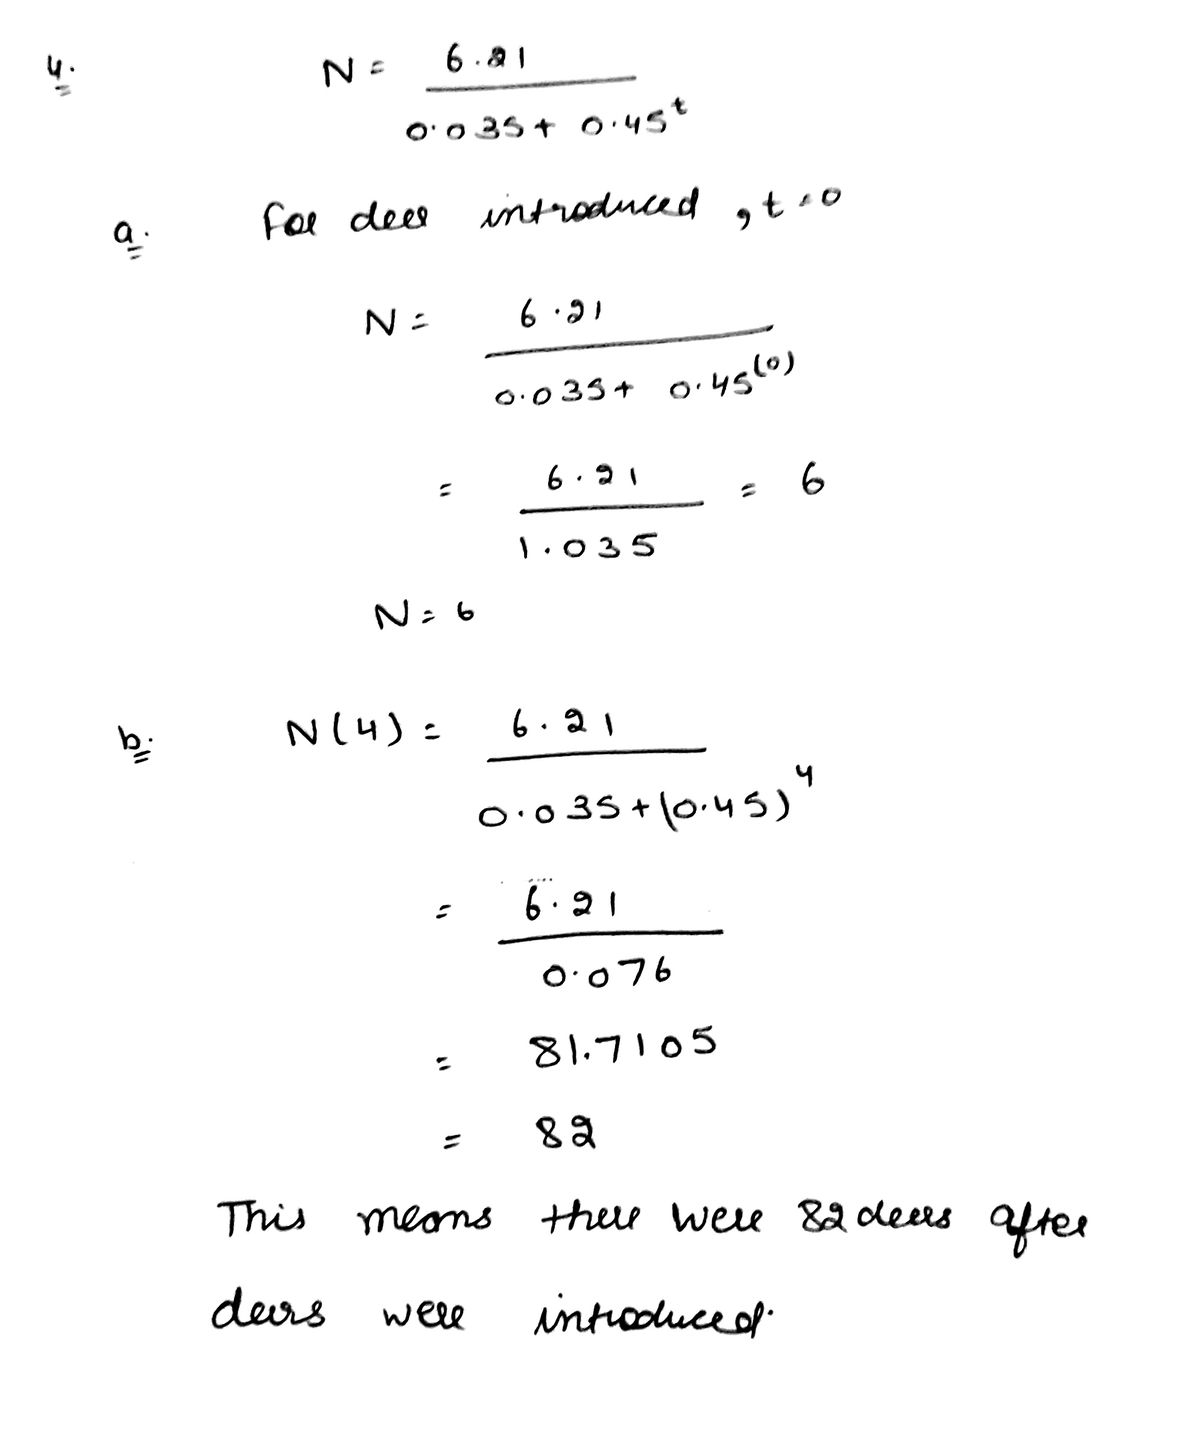 4. N = 6.21
0.035 + 0.45^t
a. For deer introduced, t = 0
N = 6.21
0.035 + 0.45^(0)
= 6.21 = 6
1.035
N = 6
b. N(4) = 6.21
0.035 + (0.45)^4
= 6.21
0.076
= 81.7105
= 82
This means there were 82 deers after
deers were introduced.